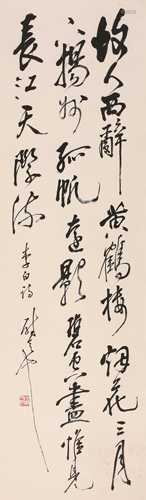 故人西辭黄鶴樓烟花三月
下揚州孤帆遠影碧空盡惟見
長江天際流
李白詩 尉天池